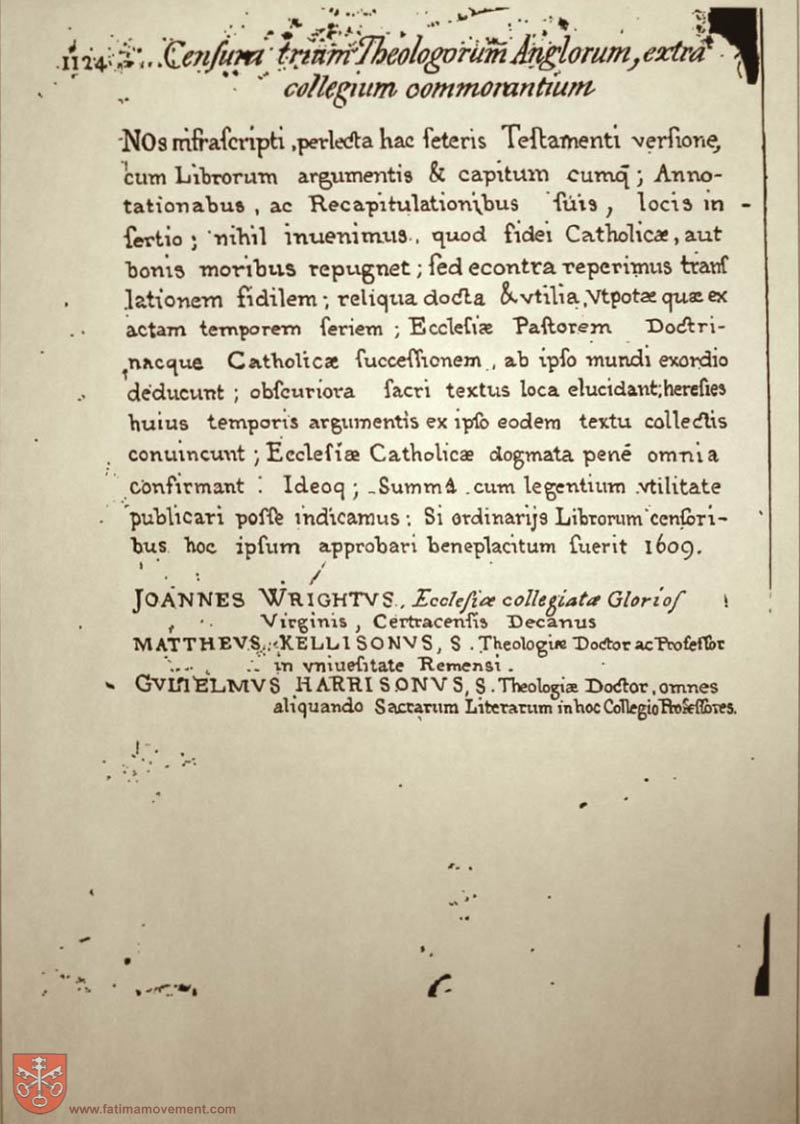 1124 Cenſura trium Theologorum Anglorum, extra
collegium commorantium
NOs mfraſcripti, perlecta hac ſeteris Teſtamenti verſione,
cum Librorum argumentis & capitum cumq̃; Anno-
tationabus, ac Recapitulationibus ſúis, locis in-
ſertio; nihil inuenimus, quod fidei Catholicæ, aut
bonis moribus repugnet; ſed econtra reperimus tranſ
lationem fidilem; reliqua docta & vtilia, Vtpotæ quæ ex
actam temporem ſeriem; Eccleſiæ Paſtorem Doctri-
nacque Catholicæ ſucceſſionem, ab ipſo mundi exordio
deducunt; obſcuriora ſacri textus loca elucidant; hereſies
huius temporis argumentis ex ipſo eodem textu collectis
conuincunt; Eccleſiæ Catholicæ dogmata pené omnia
confirmant: Ideoq; Summâ cum legentium vtilitate
publicari poſſe indicamus: Si ordinarijs Librorum cenſori-
bus hoc ipſum approbari beneplacitum fuerit 1609.
JOANNES WRIGHTVS, Eccleſiæ collegiatæ Glorioſ
Virginis, Certracenſis Decanus
MATTHEVS KELLISONVS, S. Theologiæ Doctor ac Profeſſor
in vniueſitate Remensi.
GVIłIELMVS HARRISONVS, S. Theologiæ Doctor, omnes
aliquando Sactarum Literarum in hoc Collegio Profeſſores.
www.fatimamovement.com